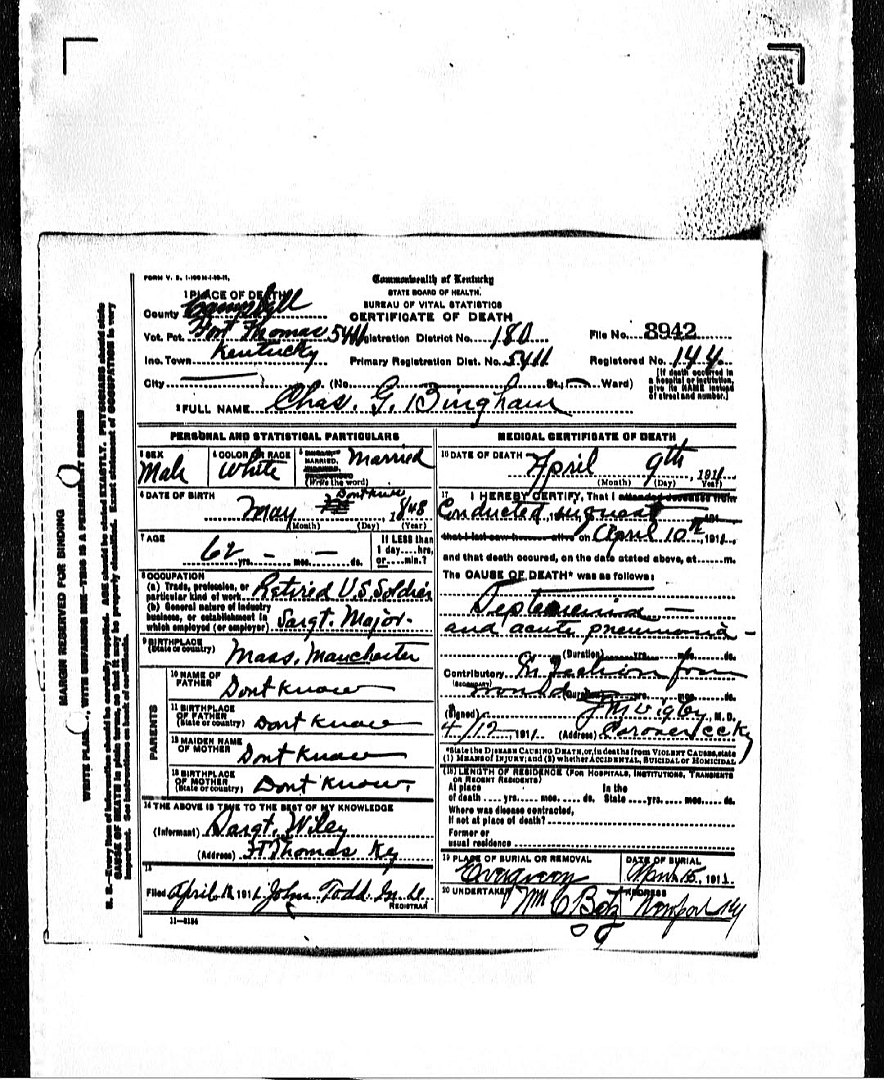 FORM V. S. 1-100 M-1-10-11.
Commonwealth of Kentucky
STATE BOARD OF HEALTH.
BUREAU OF VITAL STATISTICS
CERTIFICATE OF DEATH
1 PLACE OF DEATH
County Campbell
Vot. Pct. Fort Thomas 5411 Registration District No. 180 File No. 8942
Inc. Town Kentucky Primary Registration Dist. No. 5411 Registered No. 144
City (No. St., Ward)
[If death occurred in a hospital or institution, give its NAME instead of street and number.]
2 FULL NAME Chas. G. Bingham
PERSONAL AND STATISTICAL PARTICULARS
3 SEX Male 4 COLOR OR RACE White 5 MARRIED, Married
(Write the word)
6 DATE OF BIRTH
May Dont Know 1848
(Month) (Day) (Year)
7 AGE
62 yrs. – mos. – ds.
If LESS than 1 day....hrs, or....min.?
8 OCCUPATION
(a) Trade, profession, or particular kind of work Retired U.S. Soldier
(b) General nature of industry business, or establishment in which employed (or employer) Sargt. Major.
9 BIRTHPLACE
(State or country) Mass. Manchester
PARENTS
10 NAME OF FATHER Dont Know
11 BIRTHPLACE OF FATHER (State or country) Dont Know
12 MAIDEN NAME OF MOTHER Dont Know
13 BIRTHPLACE OF MOTHER (State or country) Dont Know.
14 THE ABOVE IS TRUE TO THE BEST OF MY KNOWLEDGE
(Informant) Sargt. Wiley
(Address) Ft Thomas Ky
15
Filed April 1911 John Todd M.D.
REGISTRAR
11-3184
MEDICAL CERTIFICATE OF DEATH
16 DATE OF DEATH
April 9th, 1911
(Month) (Day) Year)
17 I HEREBY CERTIFY, That I attended deceased from
Conducted inquest 191
that I last saw alive on April 10th, 1911,
and that death occured, on the date atated above, at m.
The CAUSE OF DEATH* was as follows:
Septicemia –
and acute pneumonia –
(Duration) yrs. mos. ds.
Contributory Infection from
(SECONDARY)
wound (Duration) yrs. mos. ds.
(Signed) M.D.
4/12 1911 (Address) Coroner CCKy
*State the DISEASE CAUSING DEATH, or, in deaths from VIOLENT CAUSES, state
(1) MEANS OF INJURY; and (2) whether ACCIDENTAL, SUICIDAL or HOMICIDAL
(18) LENGTH OF RESIDENCE (FOR HOSPITALS, INSTITUTIONS, TRANSIENTS
OR RECENT RESIDENTS)
At place of death yrs. mos. ds. In the State yrs. mos. ds.
Where was disease contracted,
if not at place of death?
Former or
usual residence
19 PLACE OF BURIAL OR REMOVAL DATE OF BURIAL
Evergreen 15, 1911
20 UNDERTAKER ADDRESS
Wm C Botz Newport Ky
MARGIN RESERVED FOR BINDING
WRITE PLAINLY, WITH UNFADING INK—THIS IS A PERMANENT RECORD
N. B.—Every item of information should be carefully supplied. AGE should be stated EXACTLY. PHYSICIANS should state
CAUSE OF DEATH in plain terms, so that it may be properly classified. Exact statement of OCCUPATION is very
important. See instructions on back of certificate.